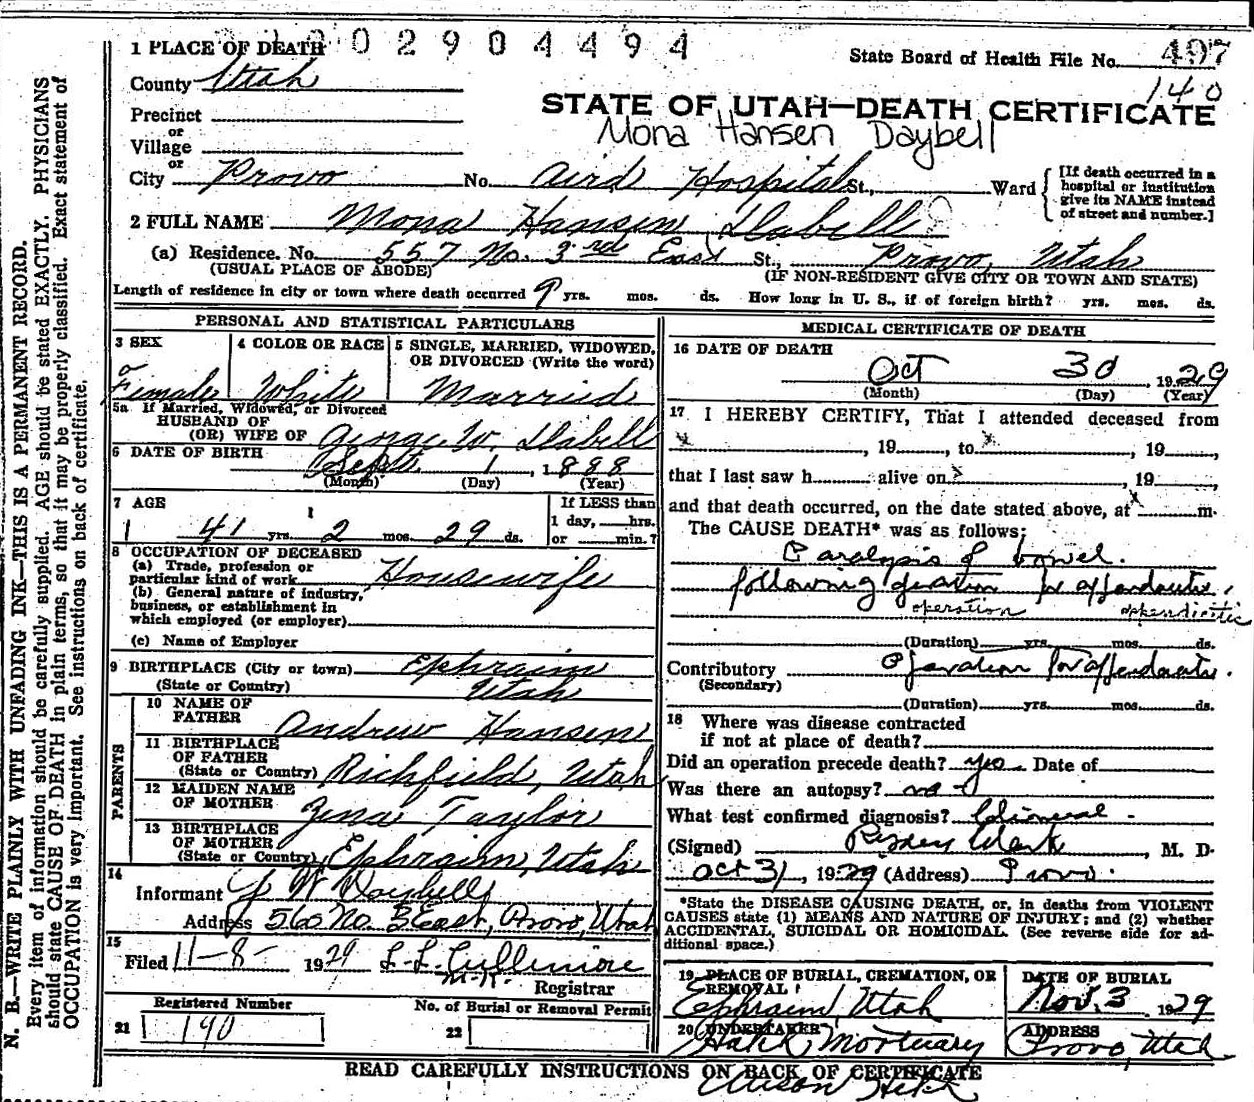 1 PLACE OF DEATH 1002904494
State Board of Health File No. 497
140
County Utah
STATE OF UTAH—DEATH CERTIFICATE
Precinct
Mona Hansen Daybell
or
Village
or
City Provo No. Aird Hospital St., Ward
[If death occurred in a hospital or institution give its NAME instead of street and number.]
2 FULL NAME Mona Hansen Dabell
(a) Residence. No. 557 No. 3rd East St., Provo, Utah
(USUAL PLACE OF ABODE) (IF NON-RESIDENT GIVE CITY OR TOWN AND STATE)
Length of residence in city or town where death occurred 9 yrs. mos. ds. How long in U. S., if of foreign birth? yrs. mos. ds.
PERSONAL AND STATISTICAL PARTICULARS
3 SEX
Female
4 COLOR OR RACE
White
5 SINGLE, MARRIED, WIDOWED, OR DIVORCED (Write the word)
Married
5a If Married, Widowed, or Divorced
HUSBAND OF
(OR) WIFE OF George W. Dabell
6 DATE OF BIRTH
Sept. 1, 1888
(Month) (Day) (Year)
7 AGE
If LESS than
1 day, hrs.
or min.?
41 yrs. 2 mos. 29 ds.
8 OCCUPATION OF DECEASED
(a) Trade, profession or
particular kind of work Housewife
(b) General nature of industry,
business, or establishment in
which employed (or employer)
(c) Name of Employer
9 BIRTHPLACE (City or town) Ephraim
(State or Country) Utah
PARENTS
10 NAME OF
FATHER Andrew Hansen
11 BIRTHPLACE
OF FATHER
(State or Country) Richfield, Utah
12 MAIDEN NAME
OF MOTHER Zena Taylor
13 BIRTHPLACE
OF MOTHER
(State or Country) Ephraim, Utah
14
Informant W Daybell
Address 560 No. 3 East, Provo, Utah
15
Filed 11-8- 1929 L. L. Cullimore
Registrar
Registered Number
21 140
No. of Burial or Removal Permit
22
MEDICAL CERTIFICATE OF DEATH
16 DATE OF DEATH
Oct 30, 1929
(Month) (Day) (Year)
17 I HEREBY CERTIFY, That I attended deceased from
, 19 , to , 19 ,
that I last saw h alive on , 19 ,
and that death occurred, on the date stated above, at m.
The CAUSE DEATH* was as follows:
Paralysis of bowel.
following operation for appendicitis.
operation appendicitis
(Duration) yrs. mos. ds.
Contributory Operation for appendicitis.
(Secondary)
(Duration) yrs. mos. ds.
18 Where was disease contracted
if not at place of death?
Did an operation precede death? yes Date of
Was there an autopsy? no
What test confirmed diagnosis? Clinical
(Signed) Clark, M. D.
Oct 31, 1929 (Address) Provo.
*State the DISEASE CAUSING DEATH, or, in deaths from VIOLENT
CAUSES state (1) MEANS AND NATURE OF INJURY; and (2) whether
ACCIDENTAL, SUICIDAL OR HOMICIDAL. (See reverse side for ad-
ditional space.)
19 PLACE OF BURIAL, CREMATION, OR
REMOVAL
Ephraim, Utah
DATE OF BURIAL
Nov. 3 1929
20 UNDERTAKER
Hatch Mortuary
ADDRESS
Provo, Utah
READ CAREFULLY INSTRUCTIONS ON BACK OF CERTIFICATE
N. B.—WRITE PLAINLY WITH UNFADING INK—THIS IS A PERMANENT RECORD.
Every item of information should be carefully supplied. AGE should be stated EXACTLY. PHYSICIANS
should state CAUSE OF DEATH in plain terms, so that it may be properly classified. Exact statement of
OCCUPATION is very important. See instructions on back of certificate.